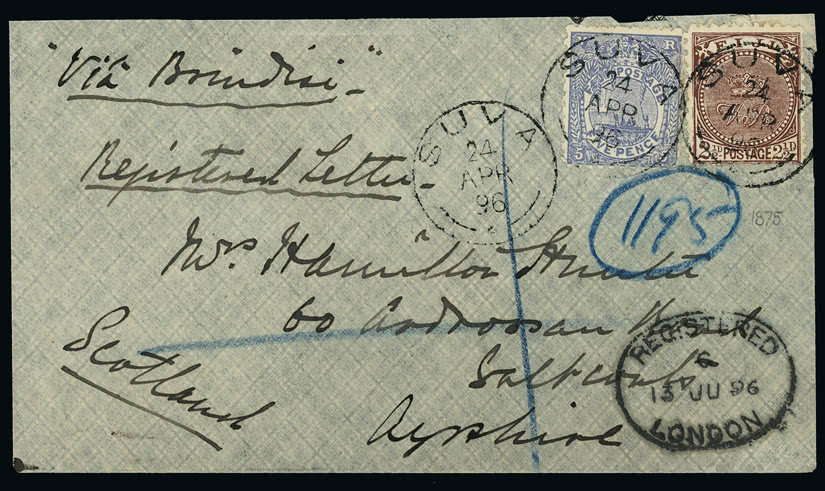 "Via Brindisi"
Registered Letter
Mrs Hamilton
60 Ardrossan Road
Saltcoats
Ayrshire
Scotland
SUVA
24
APR
96
SUVA
24
APR
96
SUVA
24
APR
POSTAGE
FIVE PENCE
FIJI
2½D POSTAGE 2½D
1195
1875
REGISTERED
6
13 JU 96
LONDON